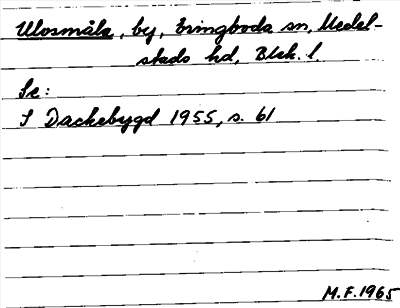 Ulosmåla, by, Eringboda sn, Medel-
stads hd, Blek. l.
Se:
I Dackebygd 1955, s. 61
M.F. 1965